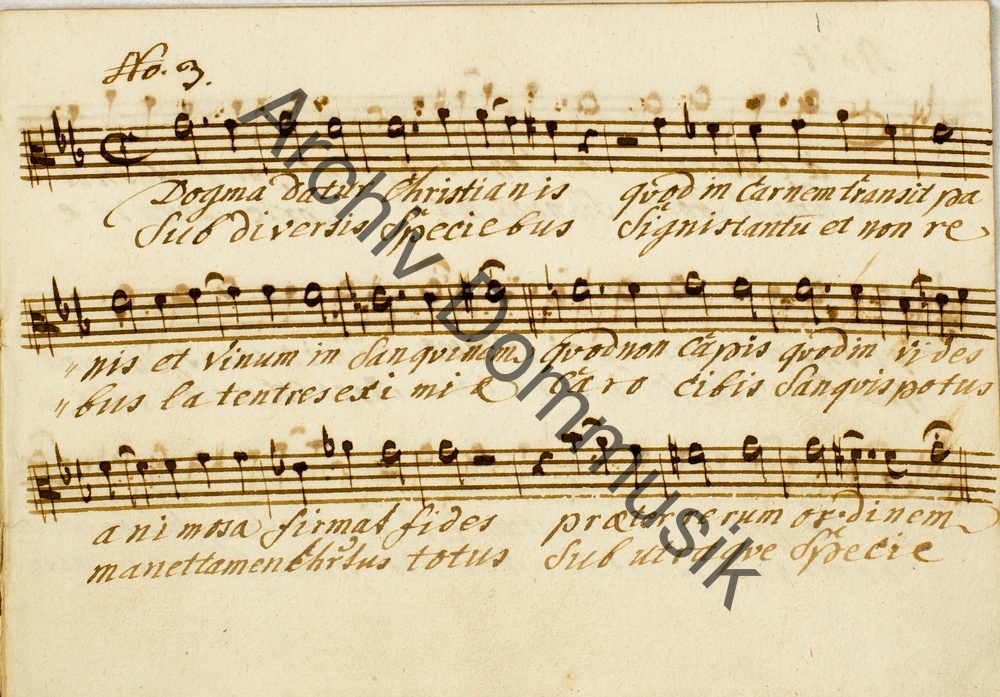 No. 3.
Dogma datur Christianis quod in Carnem transit pa
Sub diversis Speciebus Signis tantu et non re
"nis et vinum in Sanquinem quod non Capis quod in vides
"bus latent res exi miæ Caro cibis Sanquis potus
animosa firmat fides præter rerum ordinem
manet tamen Chr̄stus totus Sub utraque Specie
Archiv Dommusik